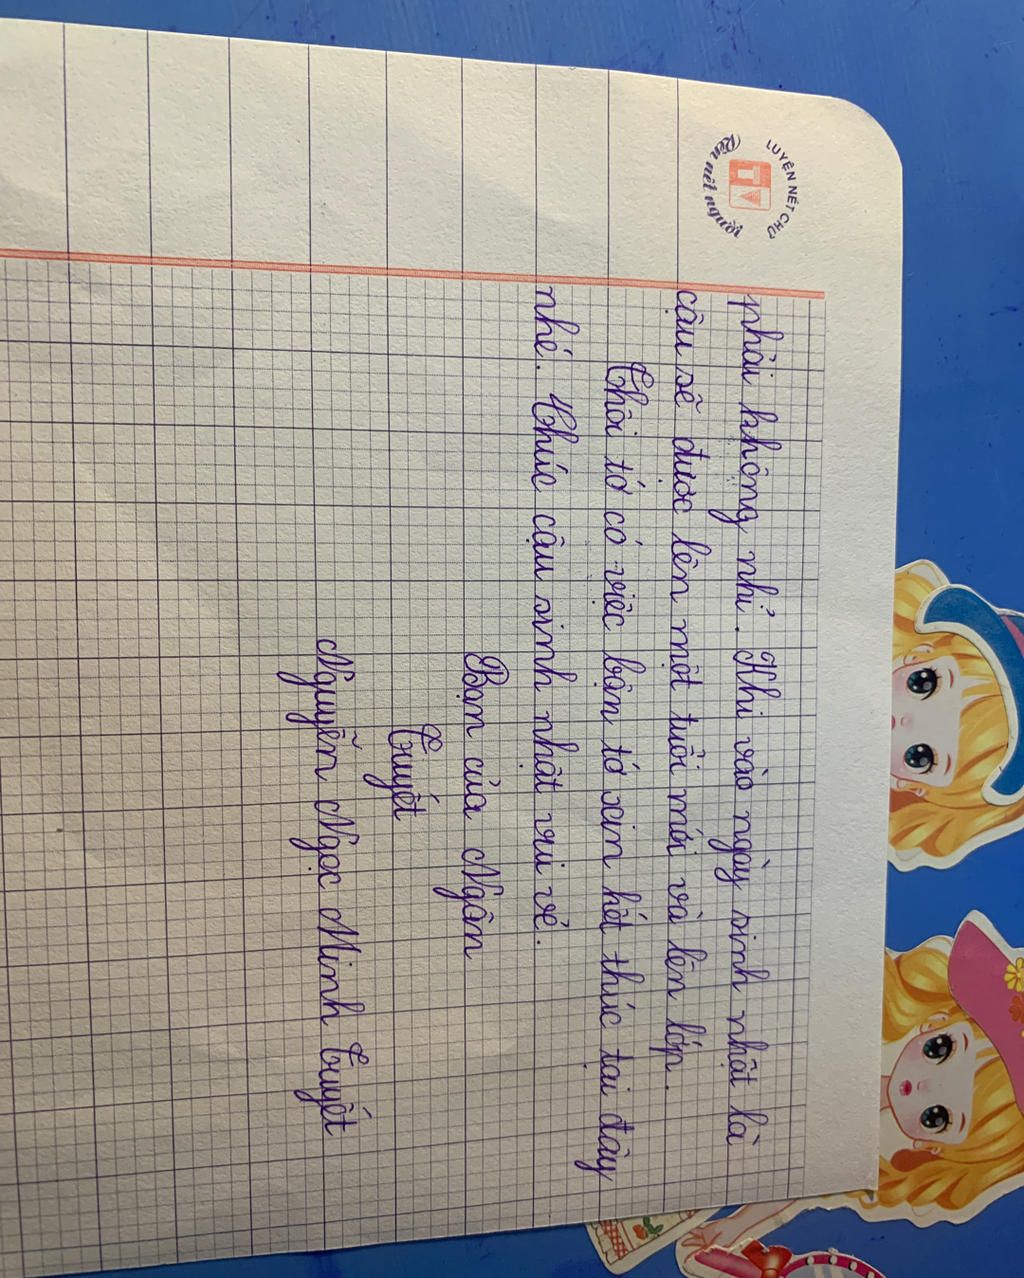 LUYỆN NÉT CHỮ
TV
Rèn nết người
phải không nhỉ. Khi vào ngày sinh nhật là
cậu sẽ được lên một tuổi mới và lên lớp.
Thôi tớ có việc bận tớ xin hết thúc tại đây
nhé. Chúc cậu sinh nhật vui vẻ.
Bạn của Ngân
Tuyết
Nguyễn Ngọc Minh Tuyết